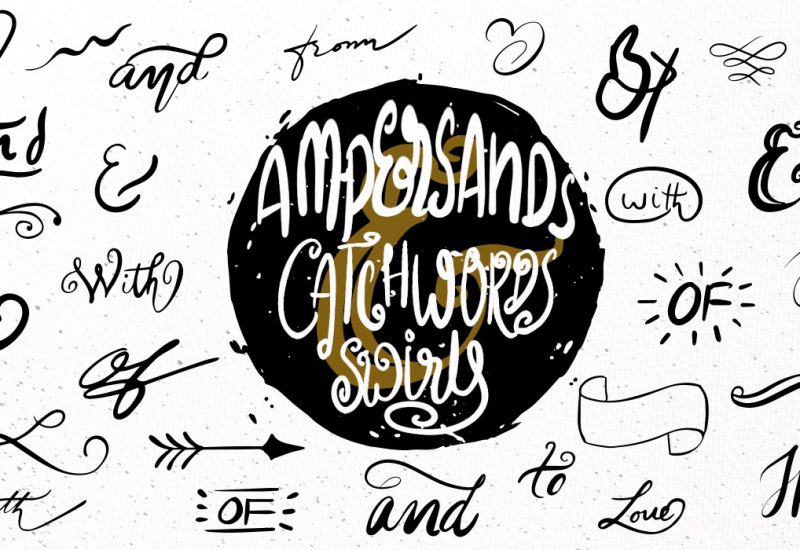 and
from
By
nd
&
with
AMPERSANDS
&
CATCHWORDS
swirly
With
OF
of
th
OF
and
to
Love